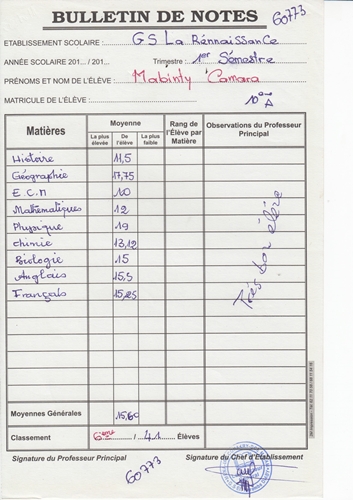 BULLETIN DE NOTES
60773
ETABLISSEMENT SCOLAIRE : GS La Rénnaissance
ANNÉE SCOLAIRE 201... / 201... Trimestre : 1er Sémestre
PRÉNOMS ET NOM DE L'ÉLÈVE : Mabinty Camara
MATRICULE DE L'ÉLÈVE : 10ème A
Matières Moyenne Rang de l'Élève par Matière Observations du Professeur Principal
La plus élevée De l'élève La plus faible
Histoire 11,5
Géographie 17,75
E.C.M 10
Mathématiques 12
Physique 19
chimie 13,12
Biologie 15
Anglais 15,5
Français 15,25
Très bon élève
Moyennes Générales 15,60
Classement 6ème / 41 Élèves
Signature du Professeur Principal Signature du Chef d'Établissement
60773